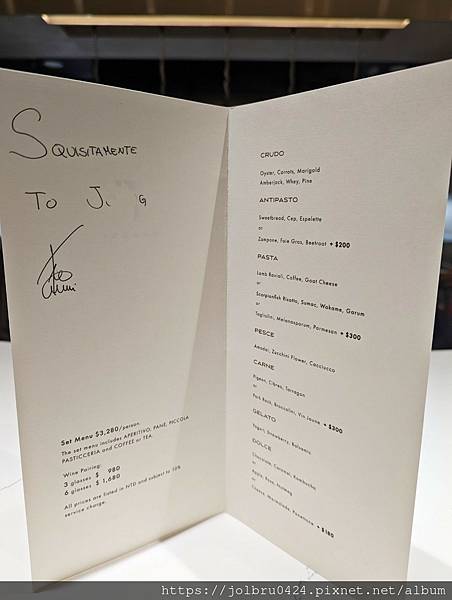 SQUISITAMENTE
TO
Set Menu $3,280/person.
The set menu includes APERITIVO, PANE, PICCOLA
PASTICCERIA and COFFEE or TEA.
Wine Pairing:
3 glasses $ 980
6 glasses $ 1,680
All prices are listed in NTD and subject to 10%
service charge.
CRUDO
Oyster, Carrots, Marigold
Amberjack, Whey, Pine
ANTIPASTO
Sweetbread, Cep, Espelette
or
Zampone, Foie Gras, Beetroot + $200
PASTA
Lamb Ravioli, Coffee, Goat Cheese
or
Scorpionfish Risotto, Sumac, Wakame, Garum
or
Tagliolini, Melanosporum, Parmesan + $300
PESCE
Amadai, Zucchini Flower, Cacciucco
CARNE
Pigeon, Citrea, Tarragon
or
Pork Rack, Broccolini, Vin Jaune + $300
GELATO
Yogurt, Strawberry, Balsamic
DOLCE
Chocolate, Caramel, Kombucha
or
Apple, Rose,
or
Marmalade, Panettone + $180
https://jolbru0424.pixnet.net/album